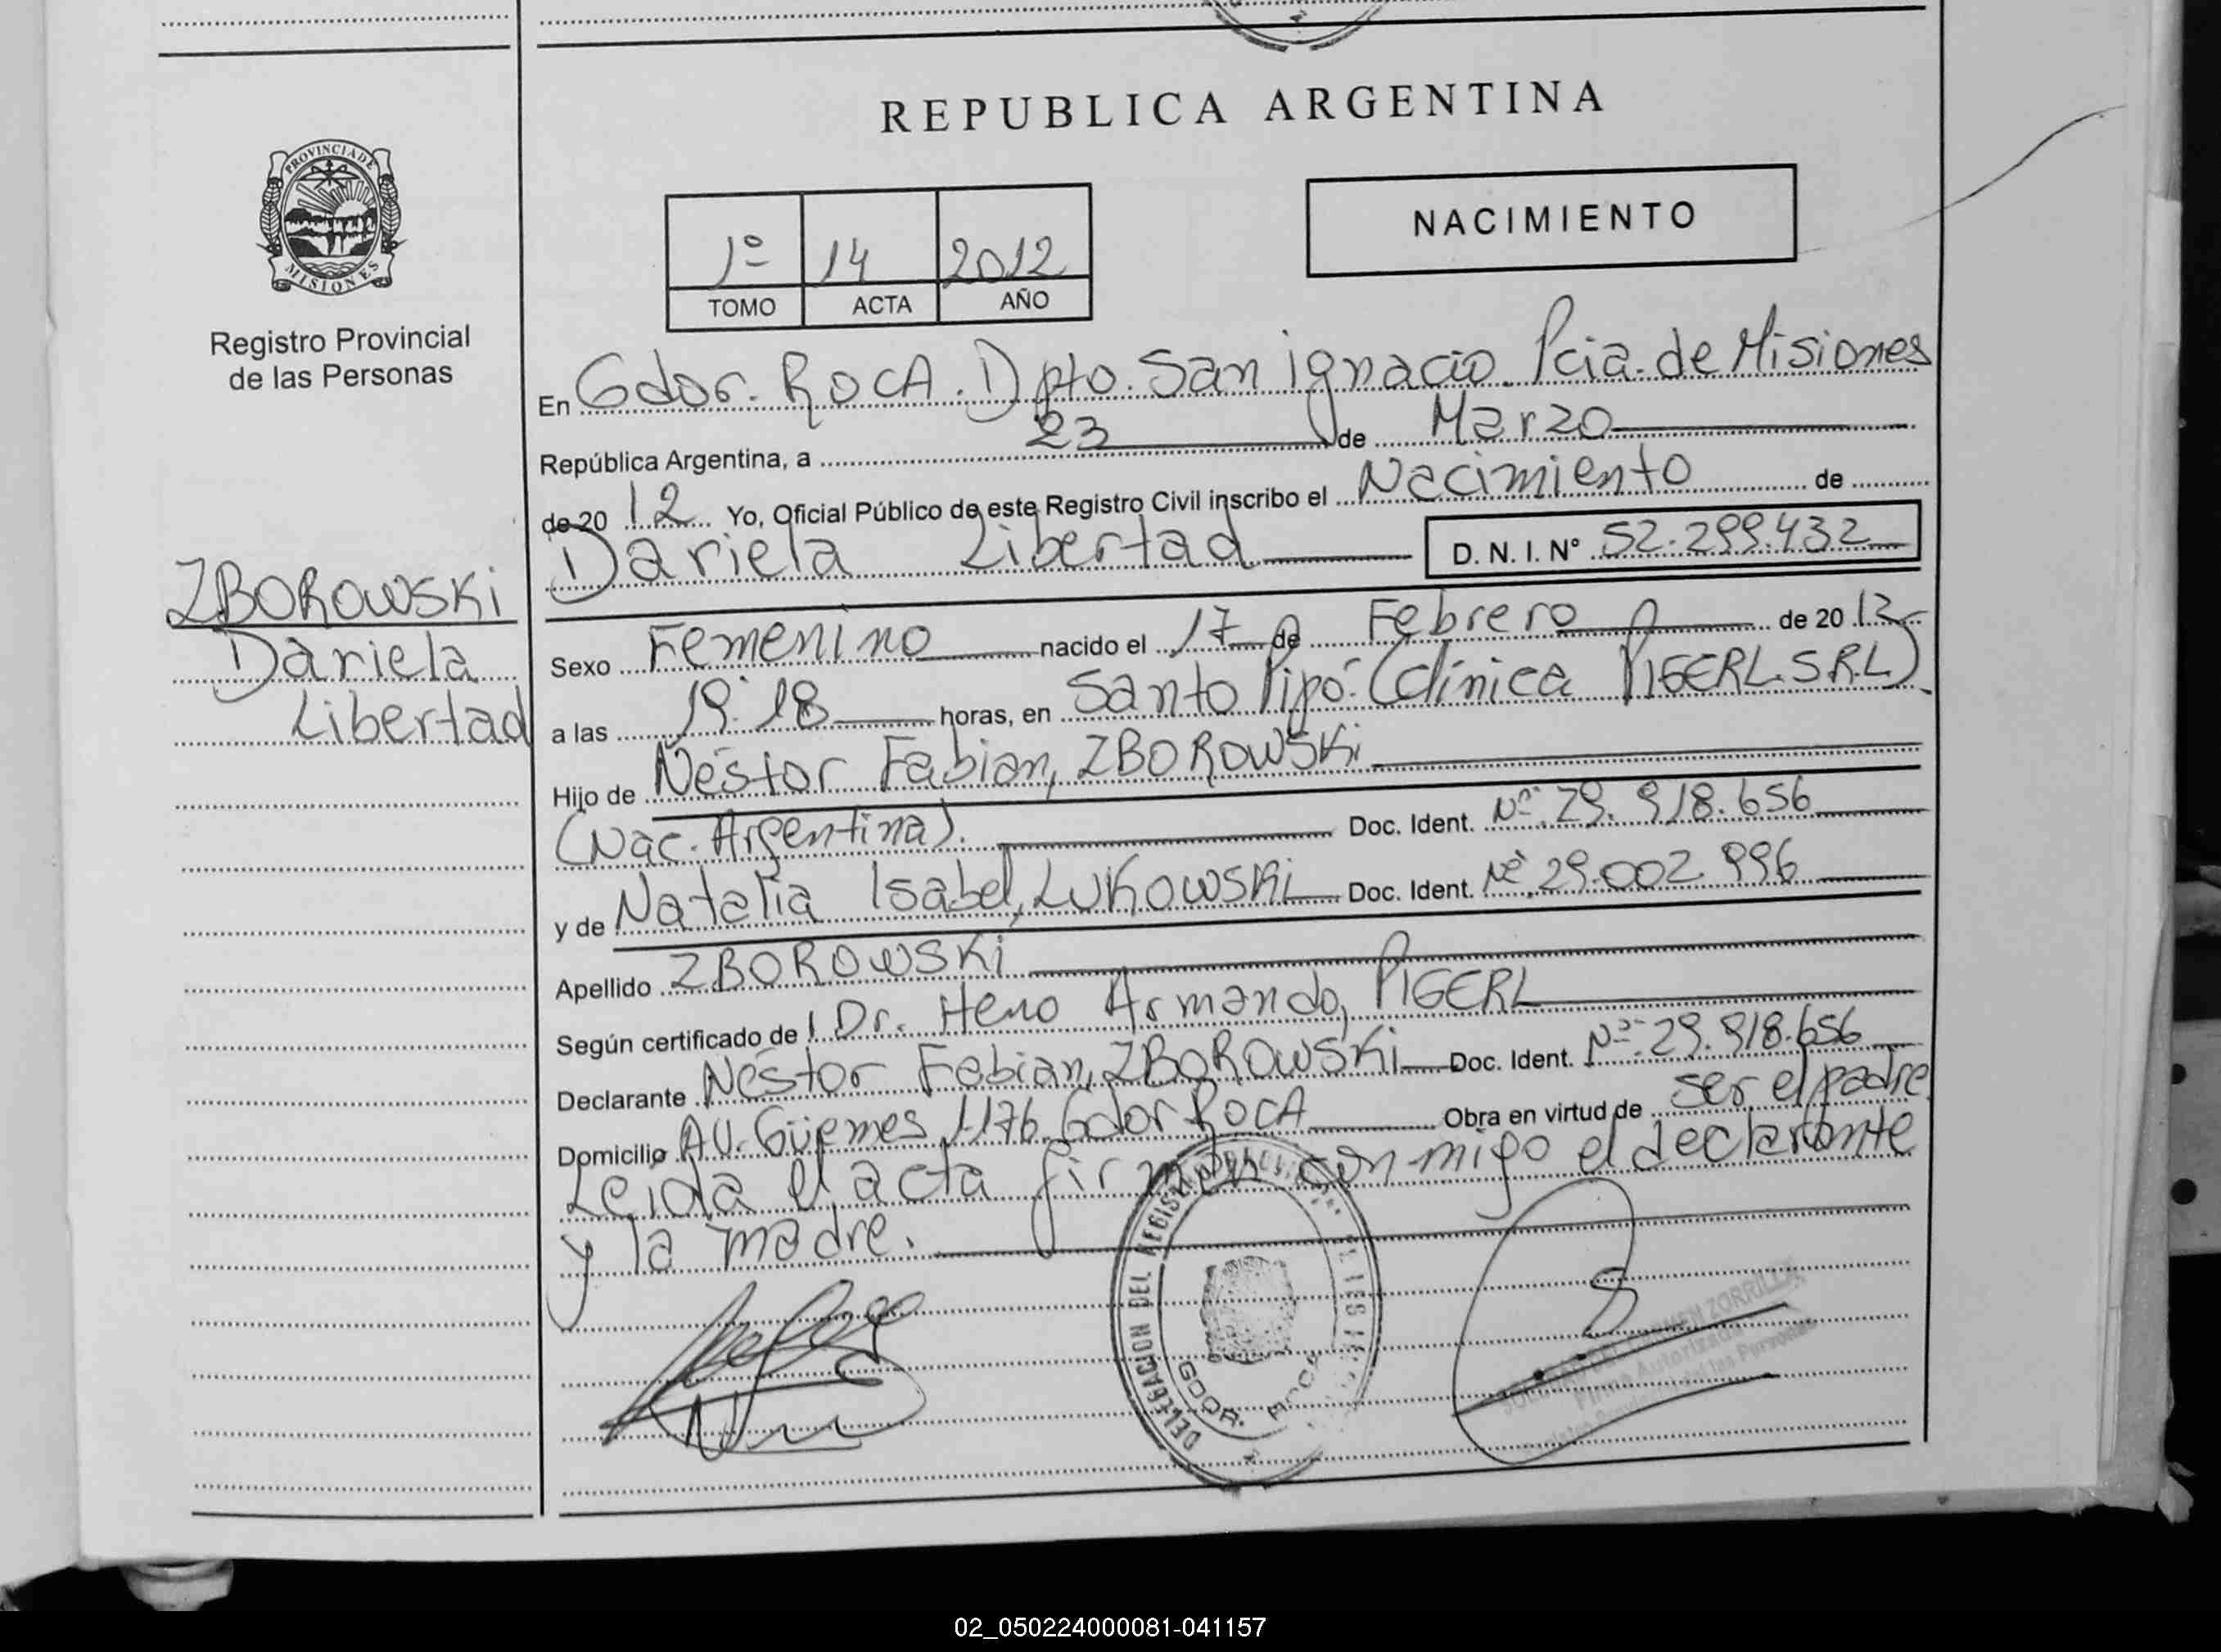 REPUBLICA ARGENTINA
PROVINCIA DE
MISIONES
Registro Provincial
de las Personas
1º 14 2012
TOMO ACTA AÑO
NACIMIENTO
En Gdor. Roca. Dpto. San ignacio. Pcia. de Misiones
República Argentina, a 23 de Marzo
de 20 12 Yo, Oficial Público de este Registro Civil inscribo el Nacimiento de
Dariela Libertad D. N. I. Nº 52.299.432
ZBOROWSKi
Dariela
Libertad
Sexo Femenino nacido el 17 de Febrero de 20 12
a las 19:18 horas, en Santo Pipó. (Clínica PIGERL S.R.L)
Hijo de Néstor Fabian, ZBOROWSKi
(Nac. Argentina). Doc. Ident. Nº 29.918.656
y de Natalia Isabel, LUKOWSKI Doc. Ident. Nº 29.002.996
Apellido ZBOROWSKi
Según certificado de l Dr. Heno Armando, PIGERL
Declarante Néstor Fabian, ZBOROWSKi Doc. Ident. Nº 29.918.656
Domicilio AV. Güemes 1176. Gdor Roca Obra en virtud de ser el padre
Leida el acta firman con migo el declarante
y la madre.
DELEGACION DEL REGISTRO
GDOR. ROCA
DEL CARMEN ZORRILLA
Firma Autorizada
Registro Provincial de las Personas
02_050224000081-041157